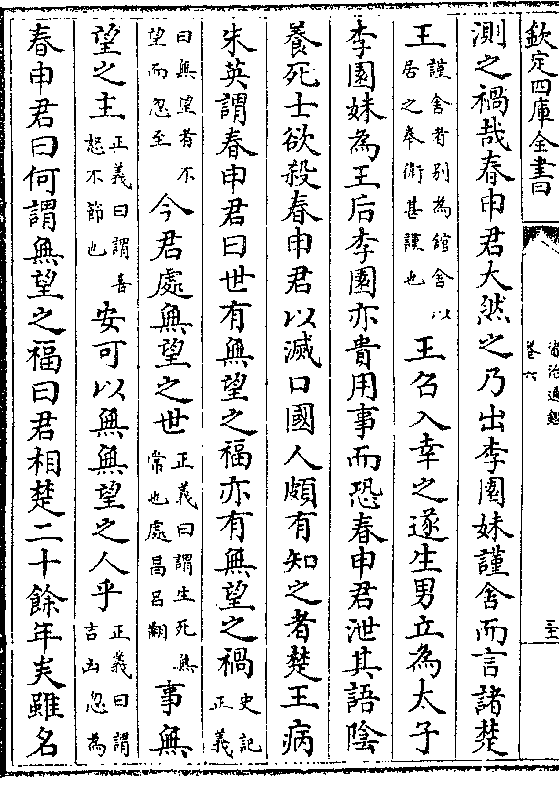 欽定四庫全書
資治通鑑
卷六
測之禍哉春申君大然之乃出李園妹謹舍而言諸楚
王謹舍者别為館舍以居之奉衛甚謹也王召入幸之遂生男立為太子
李園妹為王后李園亦貴用事而恐春申君泄其語陰
養死士欲殺春申君以滅口國人頗有知之者楚王病
朱英謂春申君曰世有無望之福亦有無望之禍史記正義
曰無望者不望而忽至今君處無望之世正義曰謂生死無常也處昌吕翻事無
望之主正義曰謂喜怒不節也安可以無無望之人乎正義曰謂吉凶忽為
春申君曰何謂無望之福曰君相楚二十餘年矣雖名